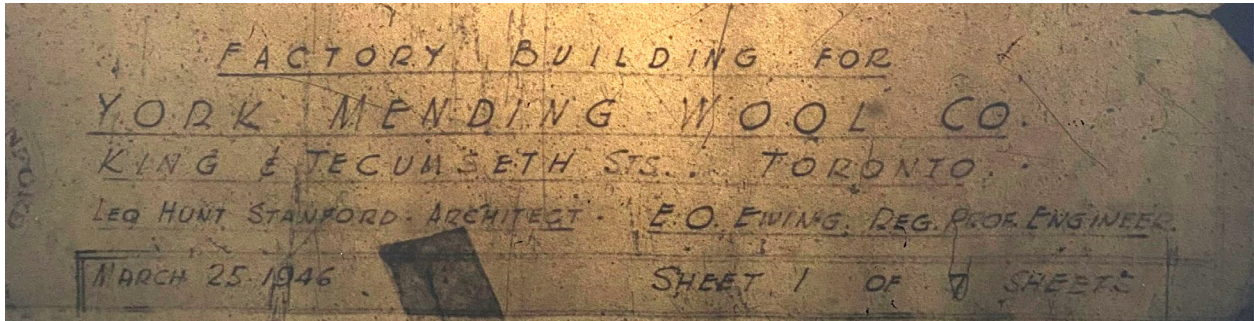 FACTORY BUILDING FOR
YORK MENDING WOOL CO.
KING & TECUMSETH STS. TORONTO.
LEO HUNT STANFORD. ARCHITECT. E.O. EWING. REG. PROF. ENGINEER.
MARCH 25 1946 SHEET 1 OF 7 SHEETS